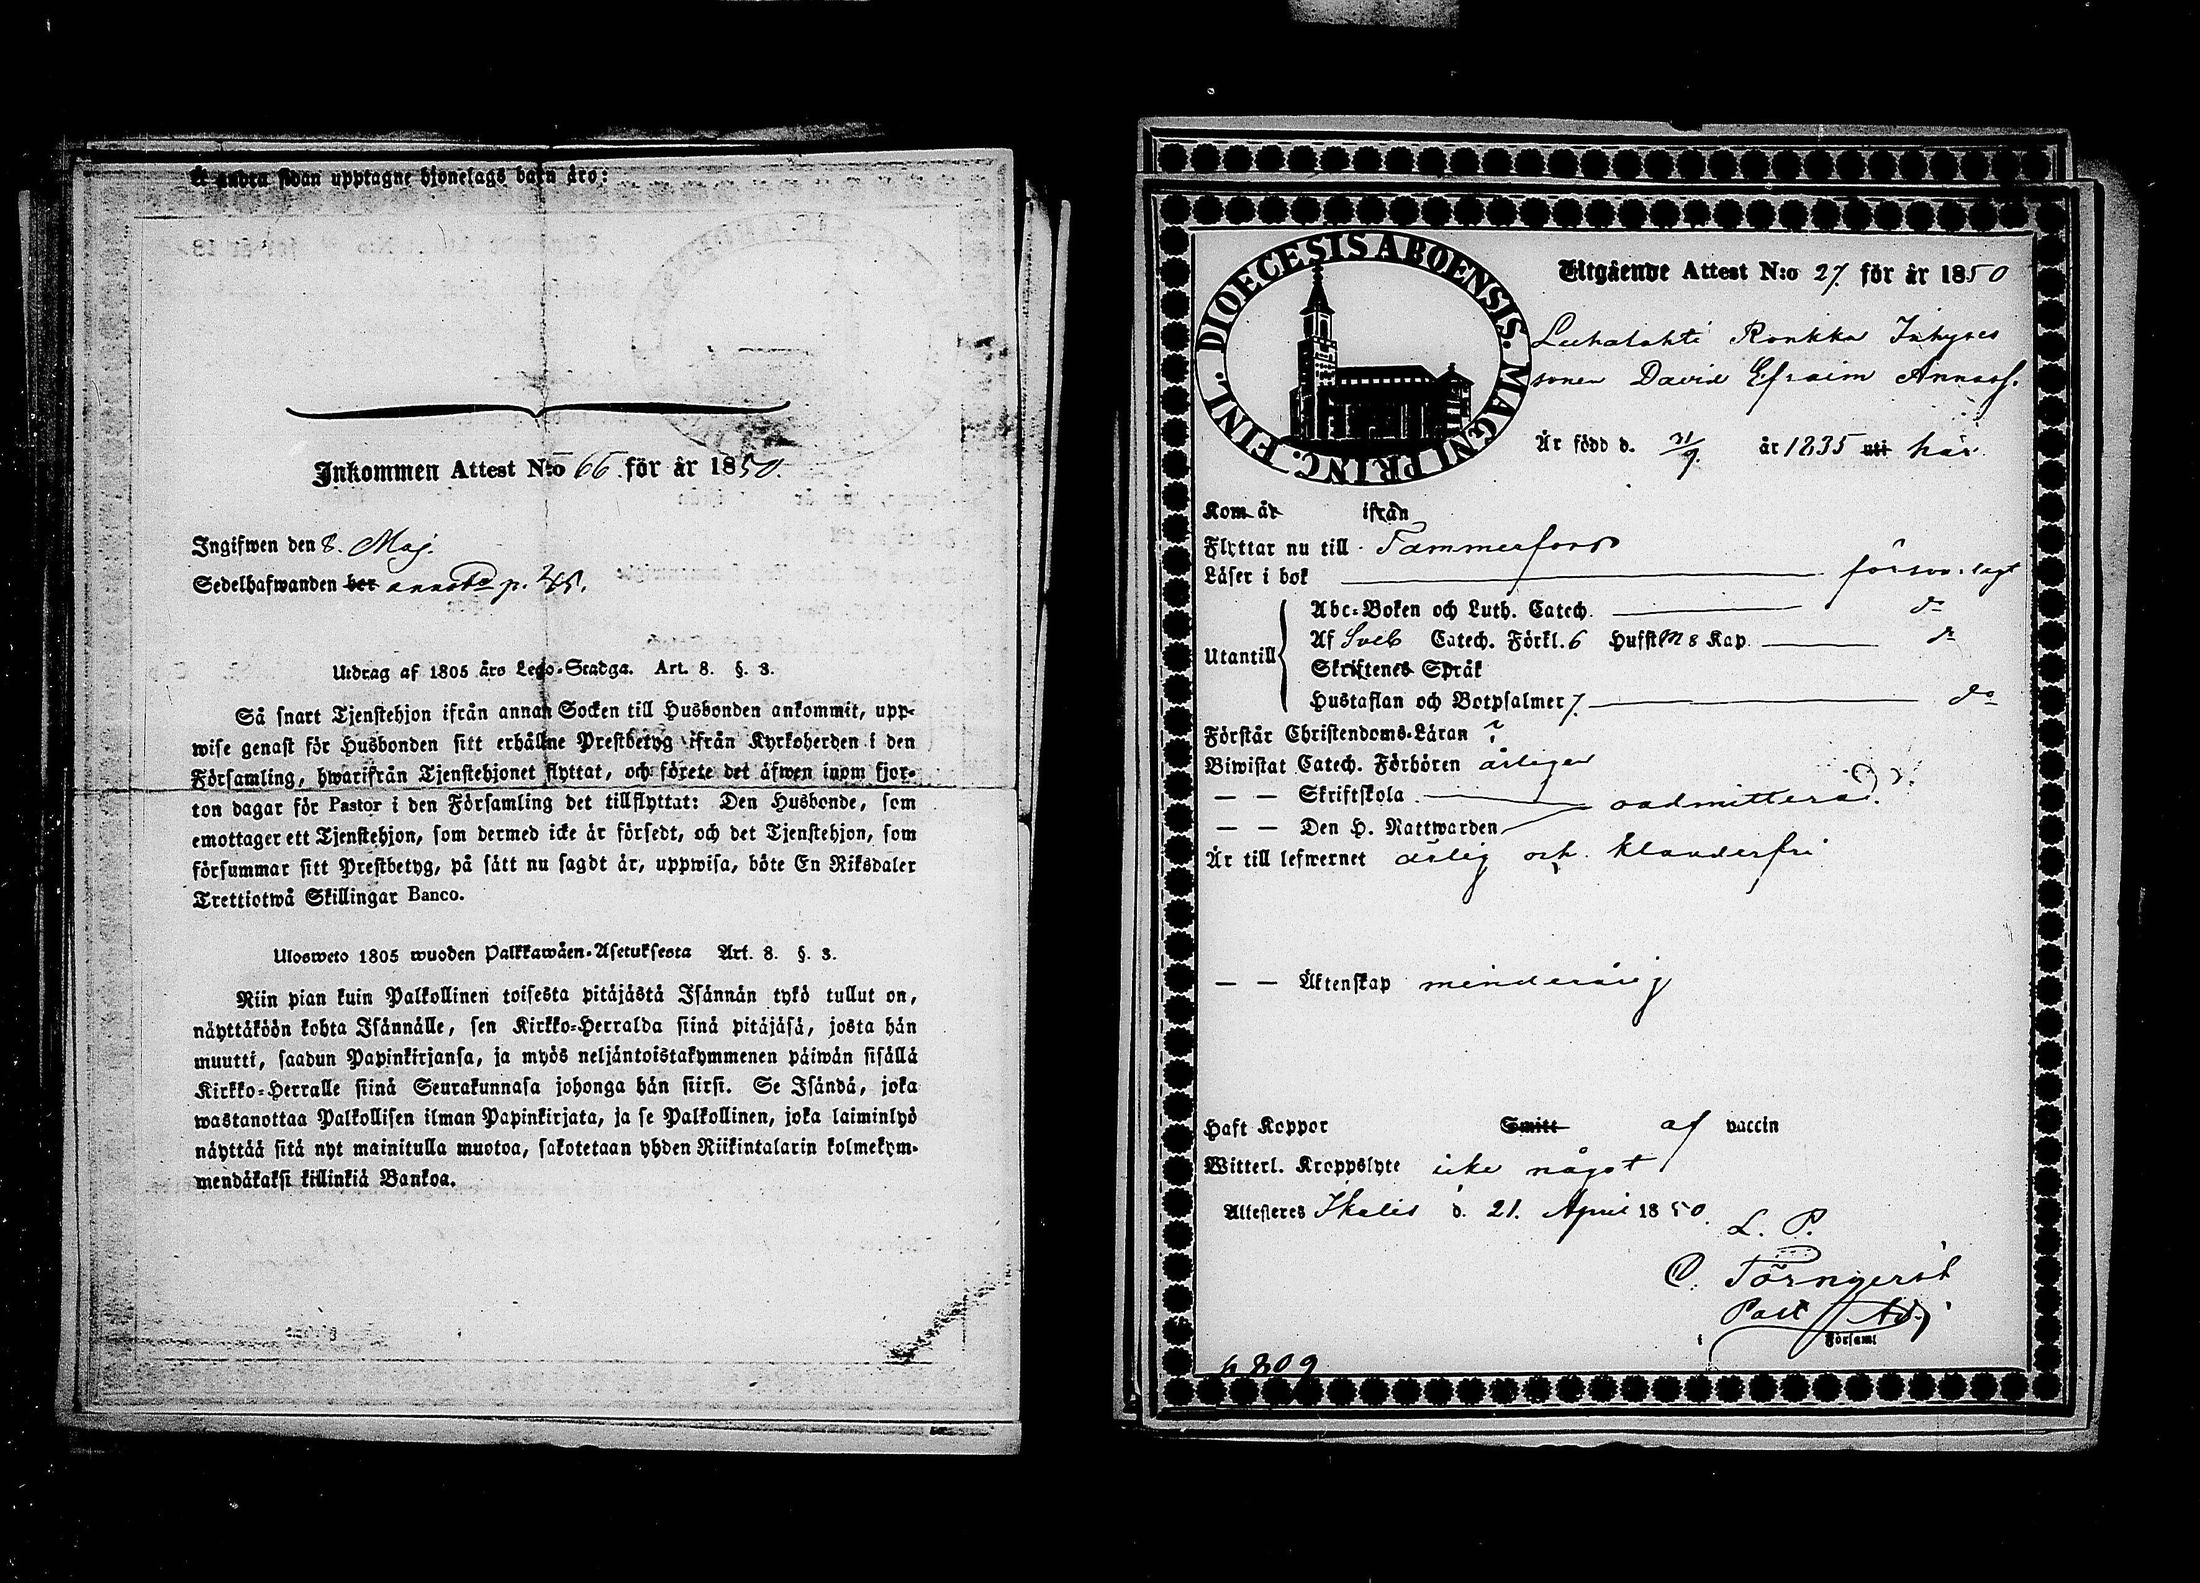 Å andra sidan upptagne hjonelags barn äro:
Inkommen Attest N:o 66 för år 1850.
Ingifwen den 8. Maj.
Sedelhafwanden ber p.
Utdrag af 1805 års Lego-Stadga. Art. 8. §. 3.
Så snart Tjenstehjon ifrån annan Socken till Husbonden ankommit, upp-
wise genast för Husbonden sitt erhållne Prestbetyg ifrån Kyrkoherden i den
Församling, hwarifrån Tjenstehjonet flyttat, och förete det äfwen inom fjor-
ton dagar för Pastor i den Församling det tillflyttat: Den Husbonde, som
emottager ett Tjenstehjon, som dermed icke är försedt, och det Tjenstehjon, som
försummar sitt Prestbetyg, på sätt nu sagdt är, uppwisa, böte En Riksdaler
Trettiotwå Skillingar Banco.
Ulosweto 1805 wuoden Palkkawäen-Asetuksesta Art. 8. §. 3.
Niin pian kuin Palkollinen toisesta pitäjästä Isännän tykö tullut on,
näyttäköön kohta Isännälle, sen Kirkko-Herralda siinä pitäjäsä, josta hän
muutti, saadun Papinkirjansa, ja myös neljäntoistakymmenen päiwän sisällä
Kirkko-Herralle siinä Seurakunnasa johonga hän siirsi. Se Isändä, joka
wastanottaa Palkollisen ilman Papinkirjata, ja se Palkollinen, joka laiminlyö
näyttää sitä nyt mainitulla muotoa, sakotetaan yhden Riikintalarin kolmekym-
mendäkaksi killinkiä Bankoa.
DIOECESIS ABOENSIS. MAGNI PRINC. FINL.
Utgående Attest N:o 27. för år 1850
Luhalahti Ronkka Inhyses
sonen David Efraim Annasf.
Är född d. 21/9. år 1835 uti här.
Kom år ifrån
Flyttar nu till Tammerfors
Läser i bok försvarligt
Abc-Boken och Luth. Catech. do
Utantill Af Sveb Catech. Förkl. 6 Hufst M 8 Kap do
Skriftenes Språk
Hustaflan och Botpsalmer 7. do
Förstår Christendoms-Läran
Biwistat Catech. Förhören årligen
— — Skriftskola oadmitterad.
— — Den H. Nattwarden
Är till lefwernet ärlig och klanderfri
— — Äktenskap minderårig
Haft Koppor Smitt af vaccin
Witterl. Kroppslyte icke något
Attesteres Ikalis d. 21. April 1850.
L. P.
C. Törnqvist
Past Adj
i Församl
6809